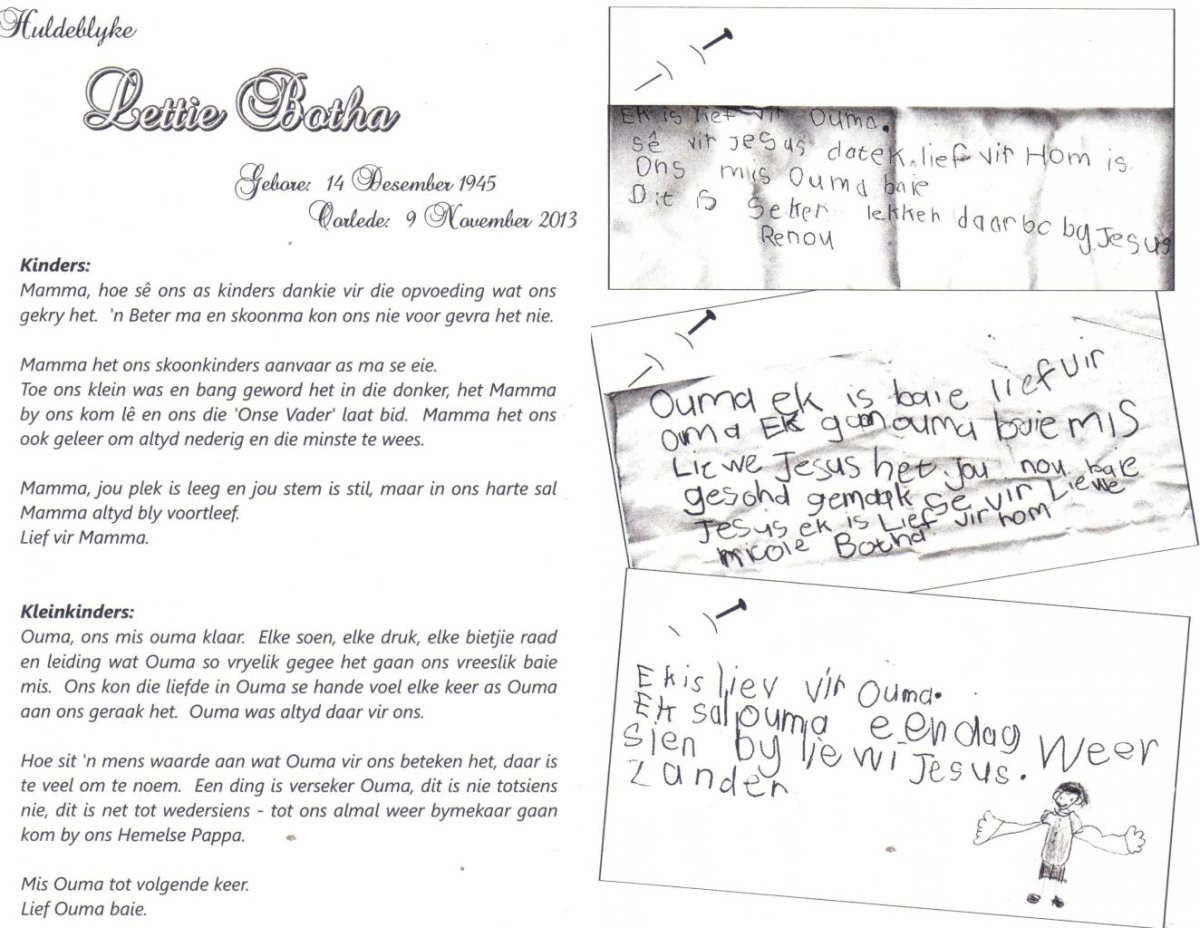 Huldeblyke
Lettie Botha
Gebore: 14 Desember 1945
Oorlede: 9 November 2013
Kinders:
Mamma, hoe sê ons as kinders dankie vir die opvoeding wat ons
gekry het. 'n Beter ma en skoonma kon ons nie voor gevra het nie.
Mamma het ons skoonkinders aanvaar as ma se eie.
Toe ons klein was en bang geword het in die donker, het Mamma
by ons kom lê en ons die 'Onse Vader' laat bid. Mamma het ons
ook geleer om altyd nederig en die minste te wees.
Mamma, jou plek is leeg en jou stem is stil, maar in ons harte sal
Mamma altyd bly voortleef.
Lief vir Mamma.
Kleinkinders:
Ouma, ons mis ouma klaar. Elke soen, elke druk, elke bietjie raad
en leiding wat Ouma so vryelik gegee het gaan ons vreeslik baie
mis. Ons kon die liefde in Ouma se hande voel elke keer as Ouma
aan ons geraak het. Ouma was altyd daar vir ons.
Hoe sit 'n mens waarde aan wat Ouma vir ons beteken het, daar is
te veel om te noem. Een ding is verseker Ouma, dit is nie totsiens
nie, dit is net tot wedersiens - tot ons almal weer bymekaar gaan
kom by ons Hemelse Pappa.
Mis Ouma tot volgende keer.
Lief Ouma baie.
Ek is lief vir Ouma.
sê vir Jesus datek lief vir Hom is.
Ons mis Ouma baie
Dit is seker lekker daar bo by Jesus
Renou
Ouma ek is baie lief vir
oma Ek gaan ouma baie mis
Liewe Jesus het jou nou baie
gesond gemaak se vir Liewe
Jesus ek is Lief vir hom
micole Botha
Ek is liev vir Ouma.
Ek sal ouma eendag weer
sien by liewi Jesus.
Zander